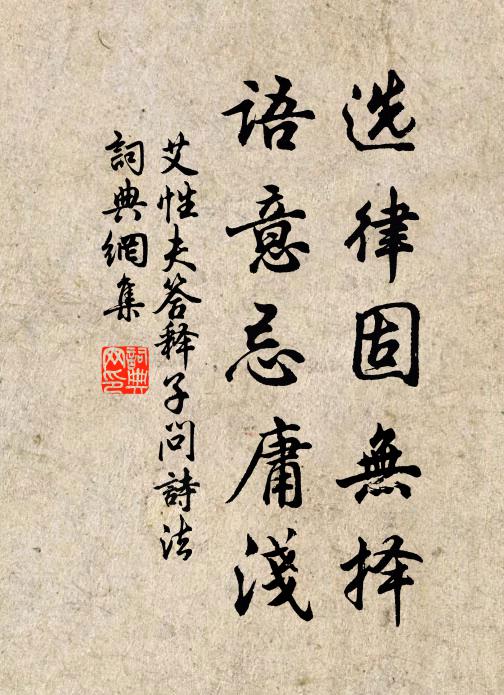 选律固無择
语意忌庸淺
艾性夫答释子问詩法
詞典網集
詞典网印